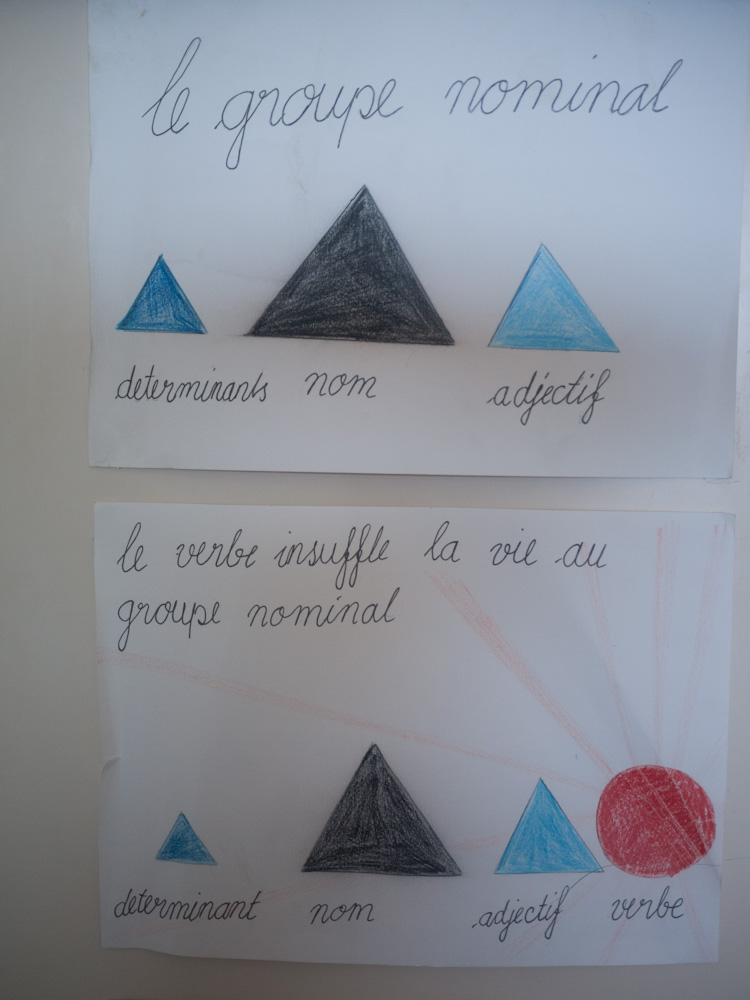 le groupe nominal
determinants nom adjectif
le verbe insuffle la vie au
groupe nominal
determinant nom adjectif verbe